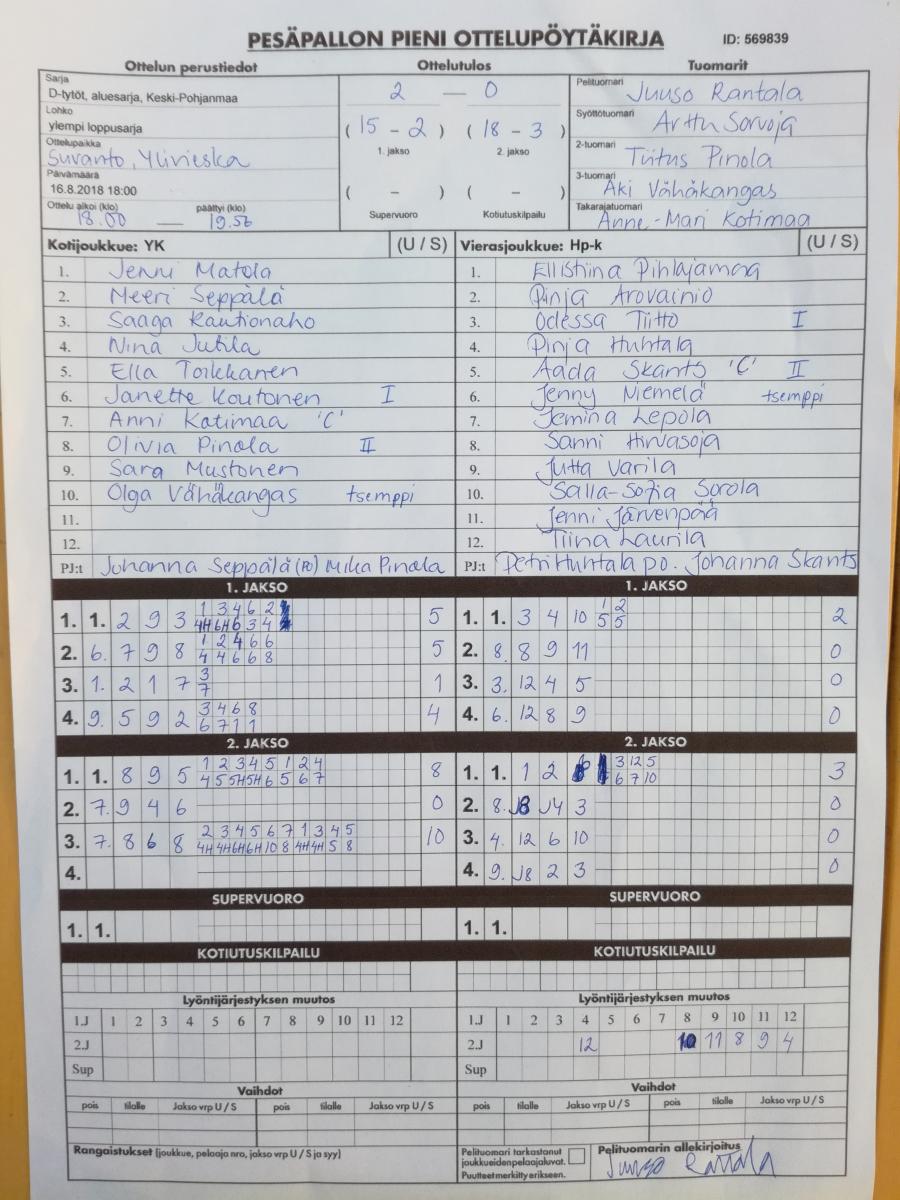 PESÄPALLON PIENI OTTELUPÖYTÄKIRJA ID: 569839
Ottelun perustiedot Ottelutulos Tuomarit
Sarja
D-tytöt, aluesarja, Keski-Pohjanmaa
Lohko
ylempi loppusarja
Ottelupaikka
Suvanto, Ylivieska
Päivämäärä
16.8.2018 18:00
Ottelu alkoi (klo) päättyi (klo)
18.00 — 19.56
2 — 0
(15 - 2) (18 - 3)
1. jakso 2. jakso
( - ) ( - )
Supervuoro Kotiutuskilpailu
Pelituomari
Juuso Rantala
Syöttötuomari
Arttu Sorvoja
2-tuomari
Tiitus Pinola
3-tuomari
Aki Vähäkangas
Takarajatuomari
Anne-Mari Kotimaa
Kotijoukkue: YK (U / S)
1. Jenni Matola
2. Meeri Seppälä
3. Saaga Rautionaho
4. Nina Jutila
5. Ella Toikkanen
6. Janette Koutonen I
7. Anni Katimaa 'C'
8. Olivia Pinola II
9. Sara Mustonen
10. Olga Vähäkangas tsemppi
11.
12.
PJ:t Johanna Seppälä (PO) Mika Pinola
Vierasjoukkue: Hp-k (U / S)
1. Ellistiina Pihlajamaa
2. Pinja Arovainio
3. Odessa Tiitto I
4. Pinja Huhtala
5. Aada Skants 'C' II
6. Jenny Niemelä tsemppi
7. Jemina Lepola
8. Sanni Hirvasoja
9. Jutta Varila
10. Salla-Sofia Sorola
11. Jenni Järvenpää
12. Tiina Laurila
PJ:t Petri Huhtala po. Johanna Skants
1. JAKSO
1 3 4 6 2
1. 1. 2 9 3 4H 6H 6 3 4 5
1 2 4 6 6
2. 6. 7 9 8 4 4 6 6 8 5
3
3. 1. 2 1 7 7 1
3 4 6 8
4. 9. 5 9 2 6 7 1 1 4
2. JAKSO
1 2 3 4 5 1 2 4
1. 1. 8 9 5 4 5 5H 5H 6 5 6 7 8
2. 7. 9 4 6 0
2 3 4 5 6 7 1 3 4 5
3. 7. 8 6 8 4H 4H 6H 6H 10 8 4H 4H 5 8 10
4.
SUPERVUORO
1. 1.
KOTIUTUSKILPAILU
Lyöntijärjestyksen muutos
1.J 1 2 3 4 5 6 7 8 9 10 11 12
2.J
Sup
Vaihdot
pois tilalle Jakso vrp U / S pois tilalle Jakso vrp U / S
Rangaistukset (joukkue, pelaaja nro, jakso vrp U / S ja syy)
1. JAKSO
1 2
1. 1. 3 4 10 5 5 2
2. 8. 8 9 11 0
3. 3. 12 4 5 0
4. 6. 12 8 9 0
2. JAKSO
3 12 5
1. 1. 1 2 6 7 10 3
2. 8. J8 J4 3 0
3. 4. 12 6 10 0
4. 9. J8 2 3 0
SUPERVUORO
1. 1.
KOTIUTUSKILPAILU
Lyöntijärjestyksen muutos
1.J 1 2 3 4 5 6 7 8 9 10 11 12
2.J 12 10 11 8 9 4
Sup
Vaihdot
pois tilalle Jakso vrp U / S pois tilalle Jakso vrp U / S
Pelituomari tarkastanut
joukkueidenpelaajaluvat.
Puutteet merkitty erikseen.
Pelituomarin allekirjoitus
Juuso Rantala